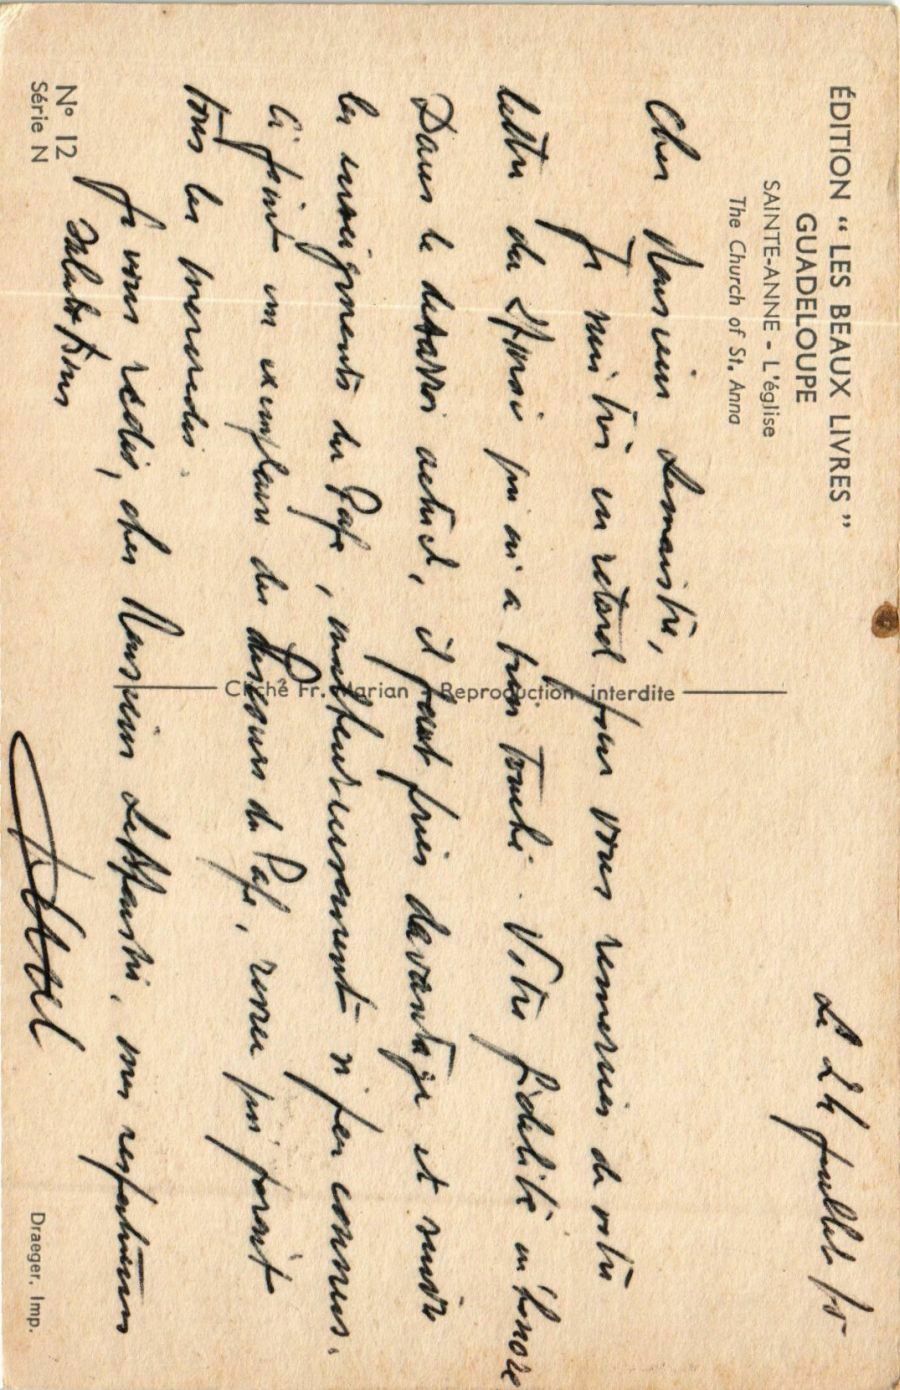 ÉDITION “ LES BEAUX LIVRES ”
GUADELOUPE
SAINTE-ANNE - L'église
The Church of St. Anna
Le 24 juillet
Cher Monsieur Lemaistre,
Je suis très en retard pour vous remercier de votre
lettre du qui m'a bien touché. Votre fidélité m'honore
Dans le désarroi actuel, il faut prier davantage et suivre
les enseignements du Pape, malheureusement si peu connus.
Ci joint un exemplaire des discours du Pape, revue qui paraît
tous les mercredis.
Je vous redis, cher Monsieur LeMaistre, mes respectueuses
salutations
Cliché Fr. Marian - Reproduction interdite
N° 12
Série N
Draeger, Imp.